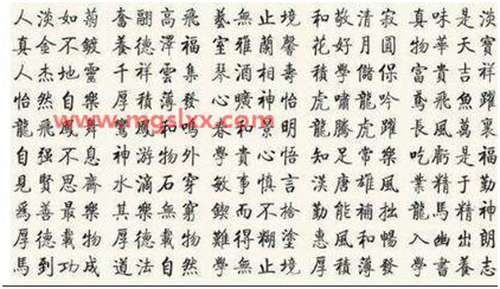 人淡如菊 奮翮高飛 藝無止境 和敬清寂 真味是淡
真金不鍍 養德澤福 室雅蘭馨 花好月圓 物華天寶
人杰地靈 千祥雲集 酒相壽 學 保 富貴吉祥
怡然自樂 厚積薄發 心曠神怡 虎嘯龍吟 鳶飛魚躍
龍飛鳳舞 鸞鳳和鳴 春和景明 龍騰虎躍 長風萬裏
www.mgslxx.com
自强不息 神游物外 學貴心悟 知足常樂 吃虧是福
見賢思齊 水滴石穿 敏事慎言 漢唐雄風 業精于勤
為善最樂 其樂無窮 鍥而不捨 勤能補拙 龍馬精神
厚德載物 厚德載物 難得糊塗 惠風和暢 入幽出朗
馬到功成 道法自然 學無止境 厚積薄發 學書養志